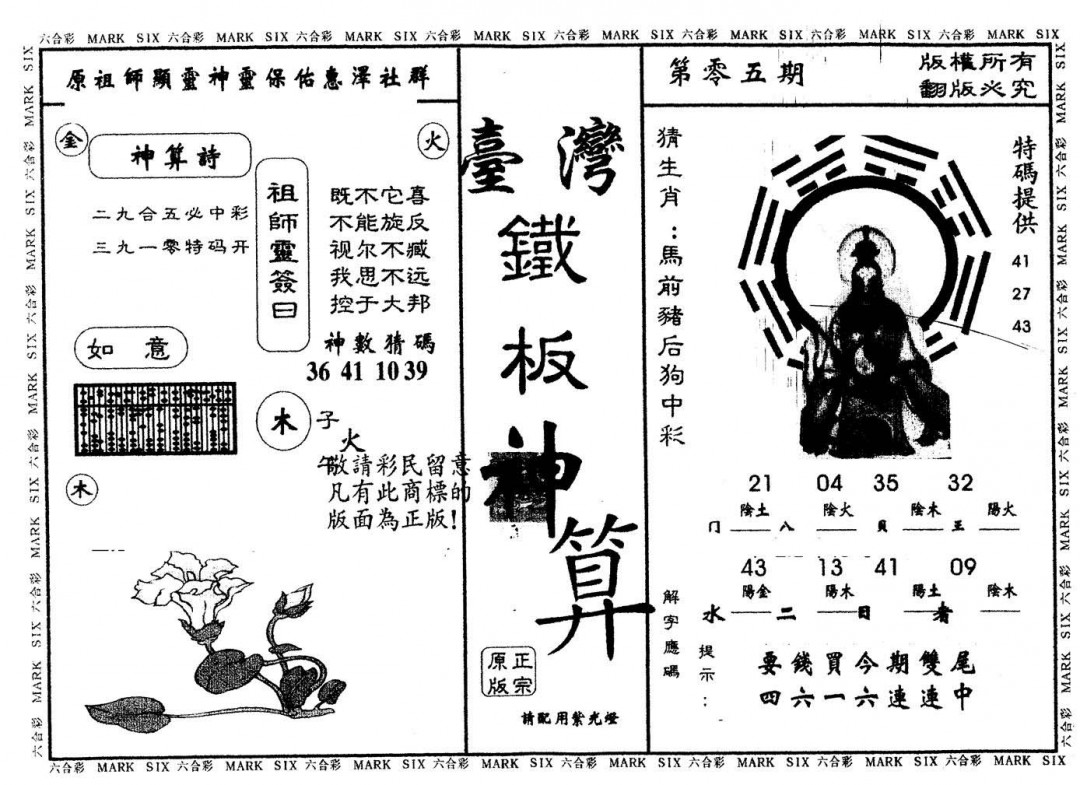 六合彩 MARK SIX 六合彩 MARK SIX 六合彩 MARK SIX 六合彩 MARK SIX 六合彩 MARK SIX 六合彩 MARK SIX 六合彩 MARK SIX 六合彩 MARK SIX
原祖師顯靈神靈保佑惠澤社群
金
火
神算詩
二九合五必中彩
三九一零特码开
祖師靈簽曰
既不它喜
不能旋反
视尔不臧
我思不远
控于大邦
神數猜碼
36 41 10 39
如意
木
子
火
午
敬請彩民留意
凡有此商標的
版面為正版!
木
臺灣
鐵
板
神
算
原正
版宗
請配用紫光燈
第零五期
版權所有
翻版必究
猜生肖:馬前豬后狗中彩
特碼提供
41
27
43
21 04 35 32
陰土 陰火 陰木 陽火
门 八 貝 王
43 13 41 09
陽金 陽木 陽土 陰木
水 二 日 者
解字應碼
提示:
要錢買今期雙尾
四六一六連連中
六合彩 MARK SIX 六合彩 MARK SIX 六合彩 MARK SIX 六合彩 MARK SIX 六合彩 MARK SIX 六合彩 MARK SIX 六合彩 MARK SIX 六合彩 MARK SIX